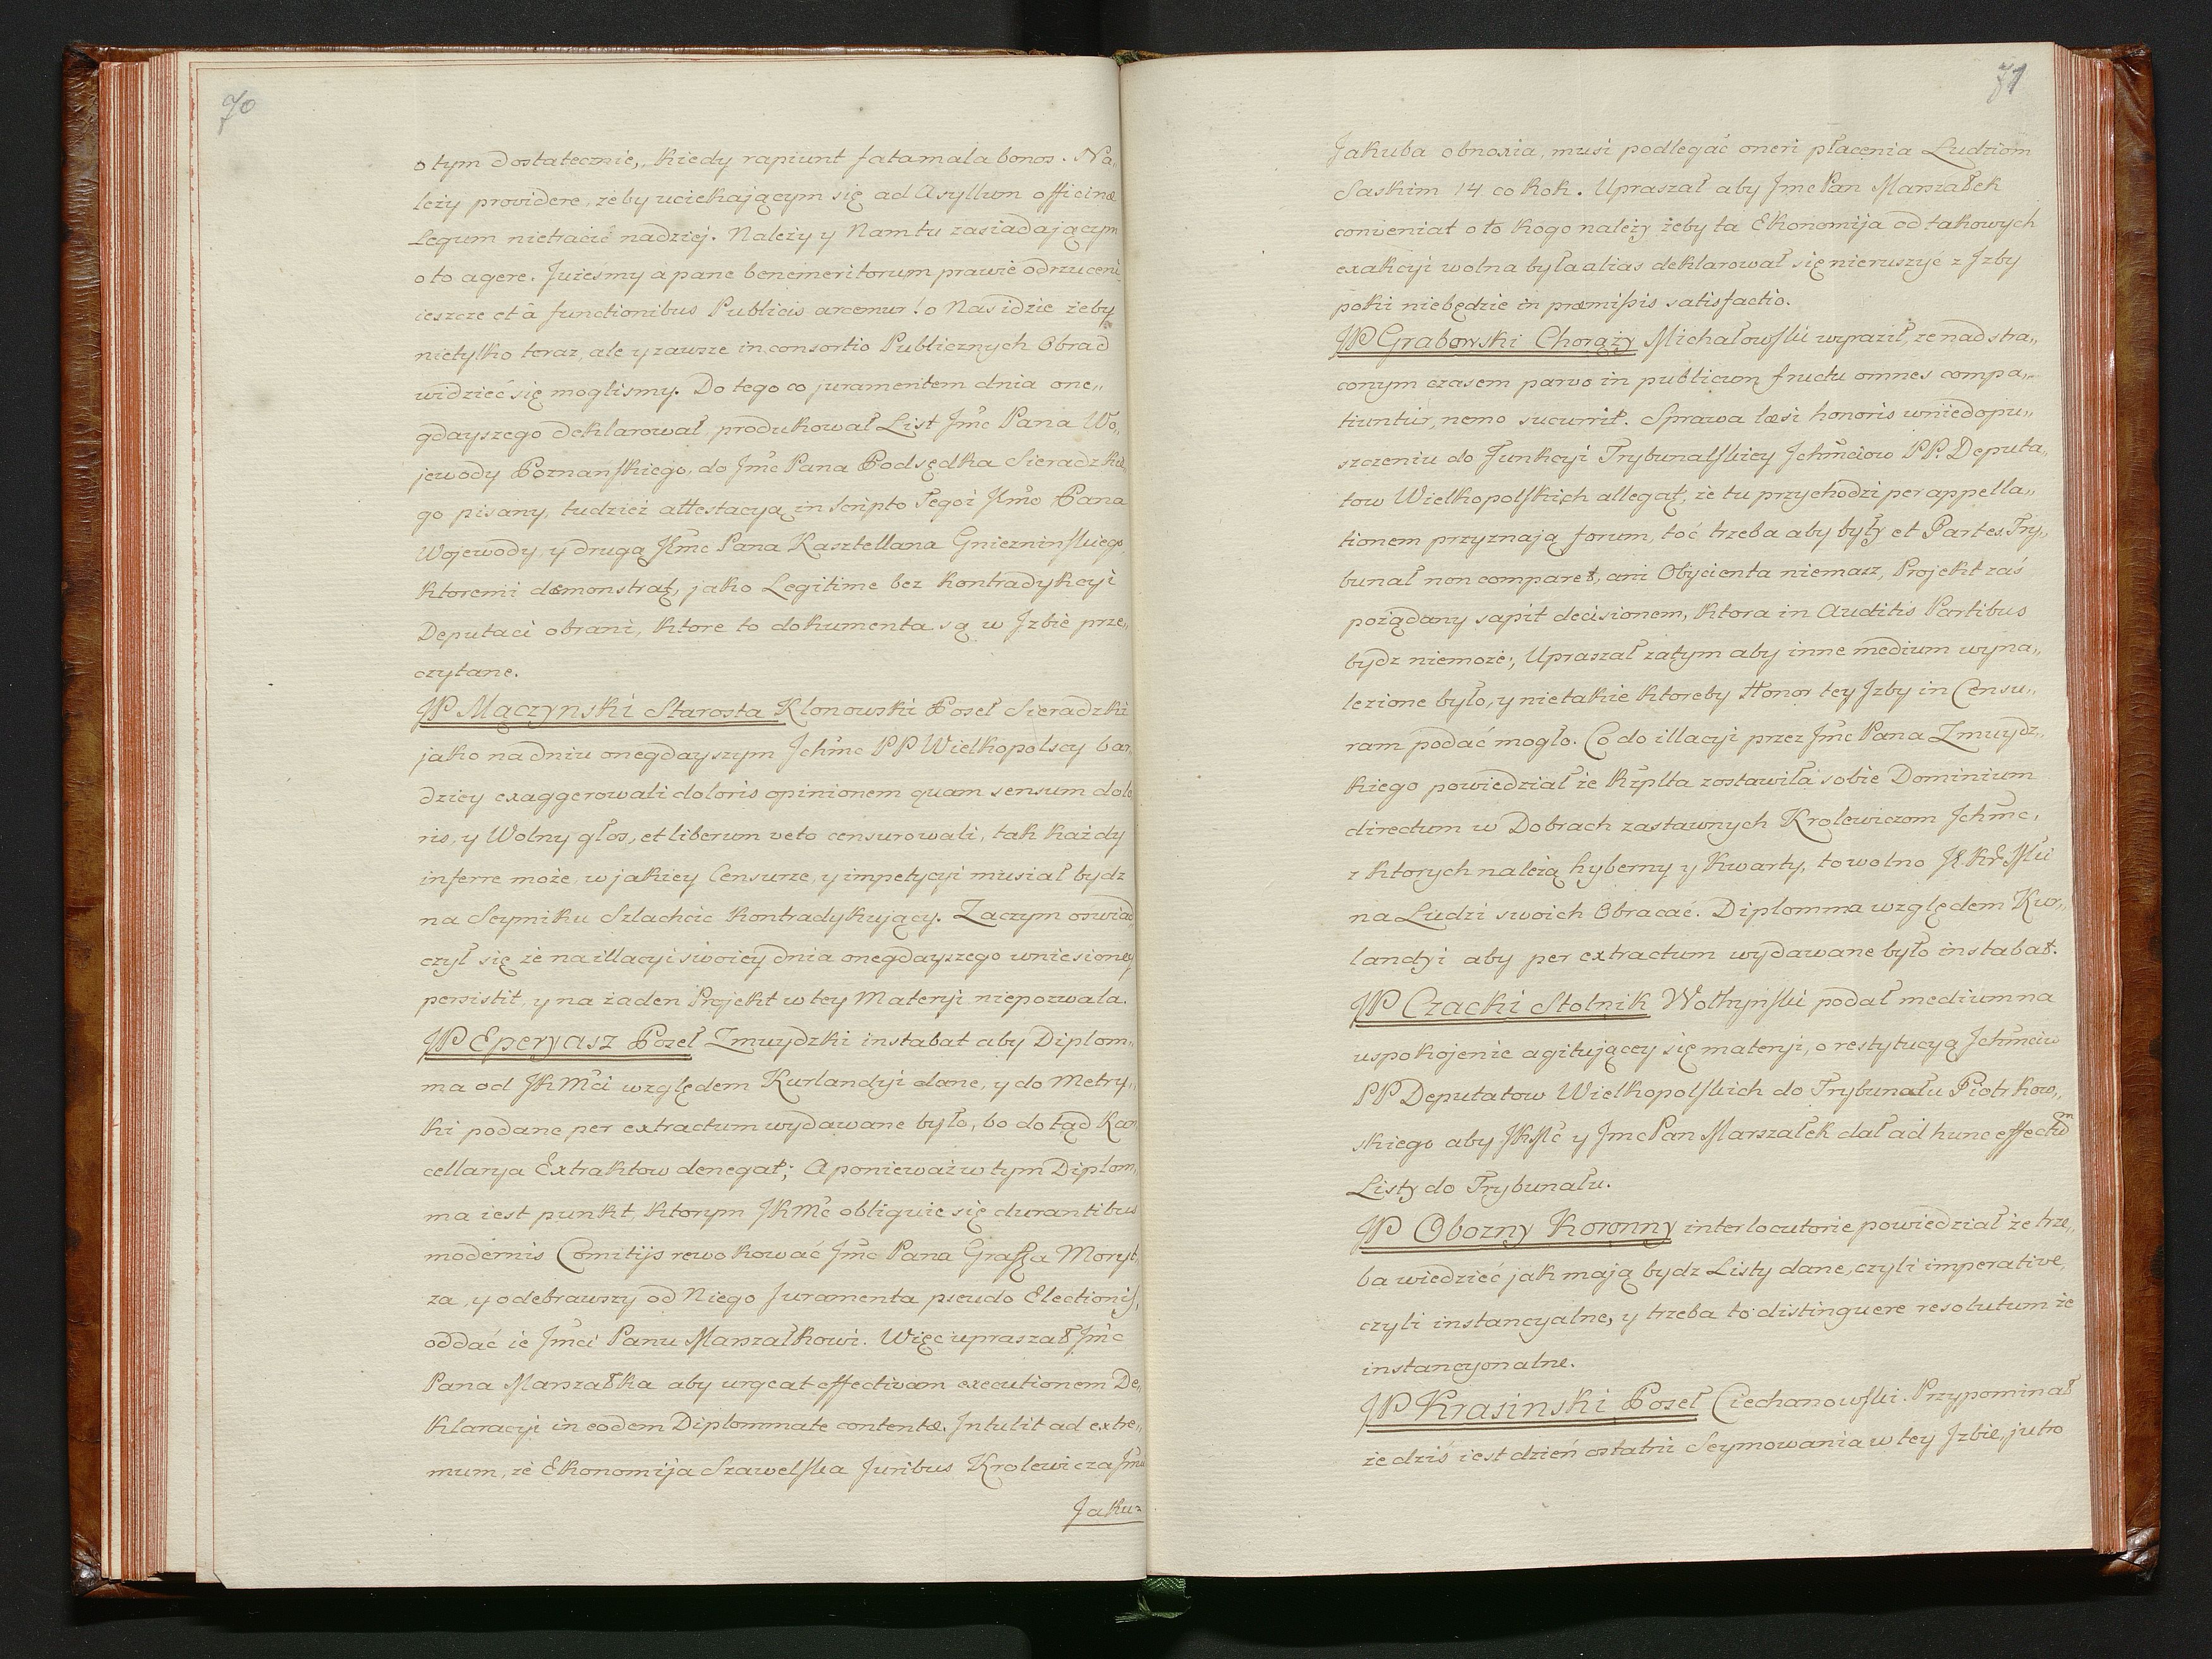 70
o tym dostatecznie, kiedy rapiunt fata mala bonos. Na„
leży providere, żeby uciekającym się ad Asyllum officinæ
Legum nietracić nadziej. Należy y Nam tu zasiadającym
o to agere. Jużesmy a pane benemeritorum prawie odrzuceni
ieszcze et â functionibus Publicis arcemur! o Nas idzie żeby
nietylko teraz, ale y zawsze in consortio Publicznych Obrad
widzieć się moglismy. Do tego co juramentem dnia one„
gdayszego deklarował, produkował List Jmc Pana Wo„
jewody Poznanskiego, do Jmc Pana Podsędka Sieradzkie
go pisany, tudzież attestacyą in scripto tegoż Jmc Pana
Wojewody, y drugą Jmc Pana Kasztellana Gnieznińskiego,
ktoremi demonstrat, jako Legitime bez kontradykcyi
Deputaci obrani, ktore to dokumenta są w Jzbie prze„
czytane.
JP Mączynski Starosta Klonowski Poseł Sieradzki
jako na dniu onegdayszym Jchmc PP Wielkopolscy bar„
dziey exaggerowali doloris opinionem quam sensum dolo
ris, y Wolny głos, et liberum veto censurowali, tak każdy
inferre może, w jakiey Censurze, y impetycyi musiał bydz
na Seymiku Szlachcic kontradykujący. Zaczym oswiad
czył się że na illacyi swoiey dnia onegdayszego wniesioney
persistit, y na żaden Projekt w tey Materyi niepozwala.
JP Eperyasz Poseł Zmuydzki instabat aby Diplom„
ma od JKMci względem Kurlandyi dane, y do Metry„
ki podane per extractum wydawane było, bo dotąd Kan
cellarya Extraktow denegat; A ponieważ w tym Diplom„
ma iest punkt, ktorym JKMc obliguie się durantibus
modernis Comitijs rewokować Jmc Pana Graffa Moryt„
za, y odebrawszy od Niego Juramenta pseudo Electionis,
oddać ie Jmci Panu Marszałkowi. Więc upraszał Jmc
Pana Marszałka aby urgeat effectivam executionem De„
klaracyi in eodem Diplommate contentæ. Jntulit ad extre„
mum, że Ekonomija Szawelska Juribus Krolewicza Jmci
Jaku„
71
Jakuba obnoxia, musi podlegać oneri płacenia Ludziom
Saskim 14 co Rok. Upraszał aby Jmc Pan Marszałek
conveniat o to kogo należy żeby ta Ekonomija od takowych
exakcyi wolna była alias deklarował się nieruszyć z Jzby
poki niebędzie in præmissis satisfactio.
JP Grabowski Chorąży Michałowski wyraził, ze nad stra„
conym czasem parvo in publicum fructu omnes compa„
tiuntur, nemo sucurrit. Sprawa læsi honoris wniedopu„
szczeniu do Funkcyi Trybunalskiey Jchmciow PP. Deputa„
tow Wielkopolskich allegat, że tu przychodzi per appella„
tionem przyznają forum, toć trzeba aby były et Partes. Try„
bunał non comparet, ani Obycienta niemasz, Projekt zaś
pożądany sapit decisionem, ktora in Auditis Partibus
bydz niemoże, Upraszał zatym aby inne medium wyna„
lezione było, y nietakie ktoreby Honor tey Jzby in Censu„
ram podać mogło. Co do illacyi przez Jmc Pana Zmuydz„
kiego powiedział że Rzplta zostawiła sobie Dominium
directum w Dobrach zastawnych Krolewiczom Jchmc,
z ktorych należą hyberny y Kwarty, to wolno JKrMci
na Ludzi swoich Obracać. Diplomma względem Kur„
landyi aby per extractum wydawane było instabat.
JP Czacki Stolnik Wołhynski podał medium na
uspokojenie agitującey się materyi, o restytucyą Jchmciw
PP Deputatow Wielkopolskich do Trybunału Piotrkow„
skiego aby JKMc y Jmc Pan Marszałek dał ad hunc effectum
Listy do Trybunału.
JP Obozny Koronny interlocutorie powiedział że trze„
ba wiedzieć jak mają bydz Listy dane, czyli imperative,
czyli instancyalne, y trzeba to distinguere resolutum że
instancyonalne.
JP Krasinski Poseł Ciechanowski. Przypominał
że dziś iest dzień ostatni Seymowania w tey Jzbie, jutro